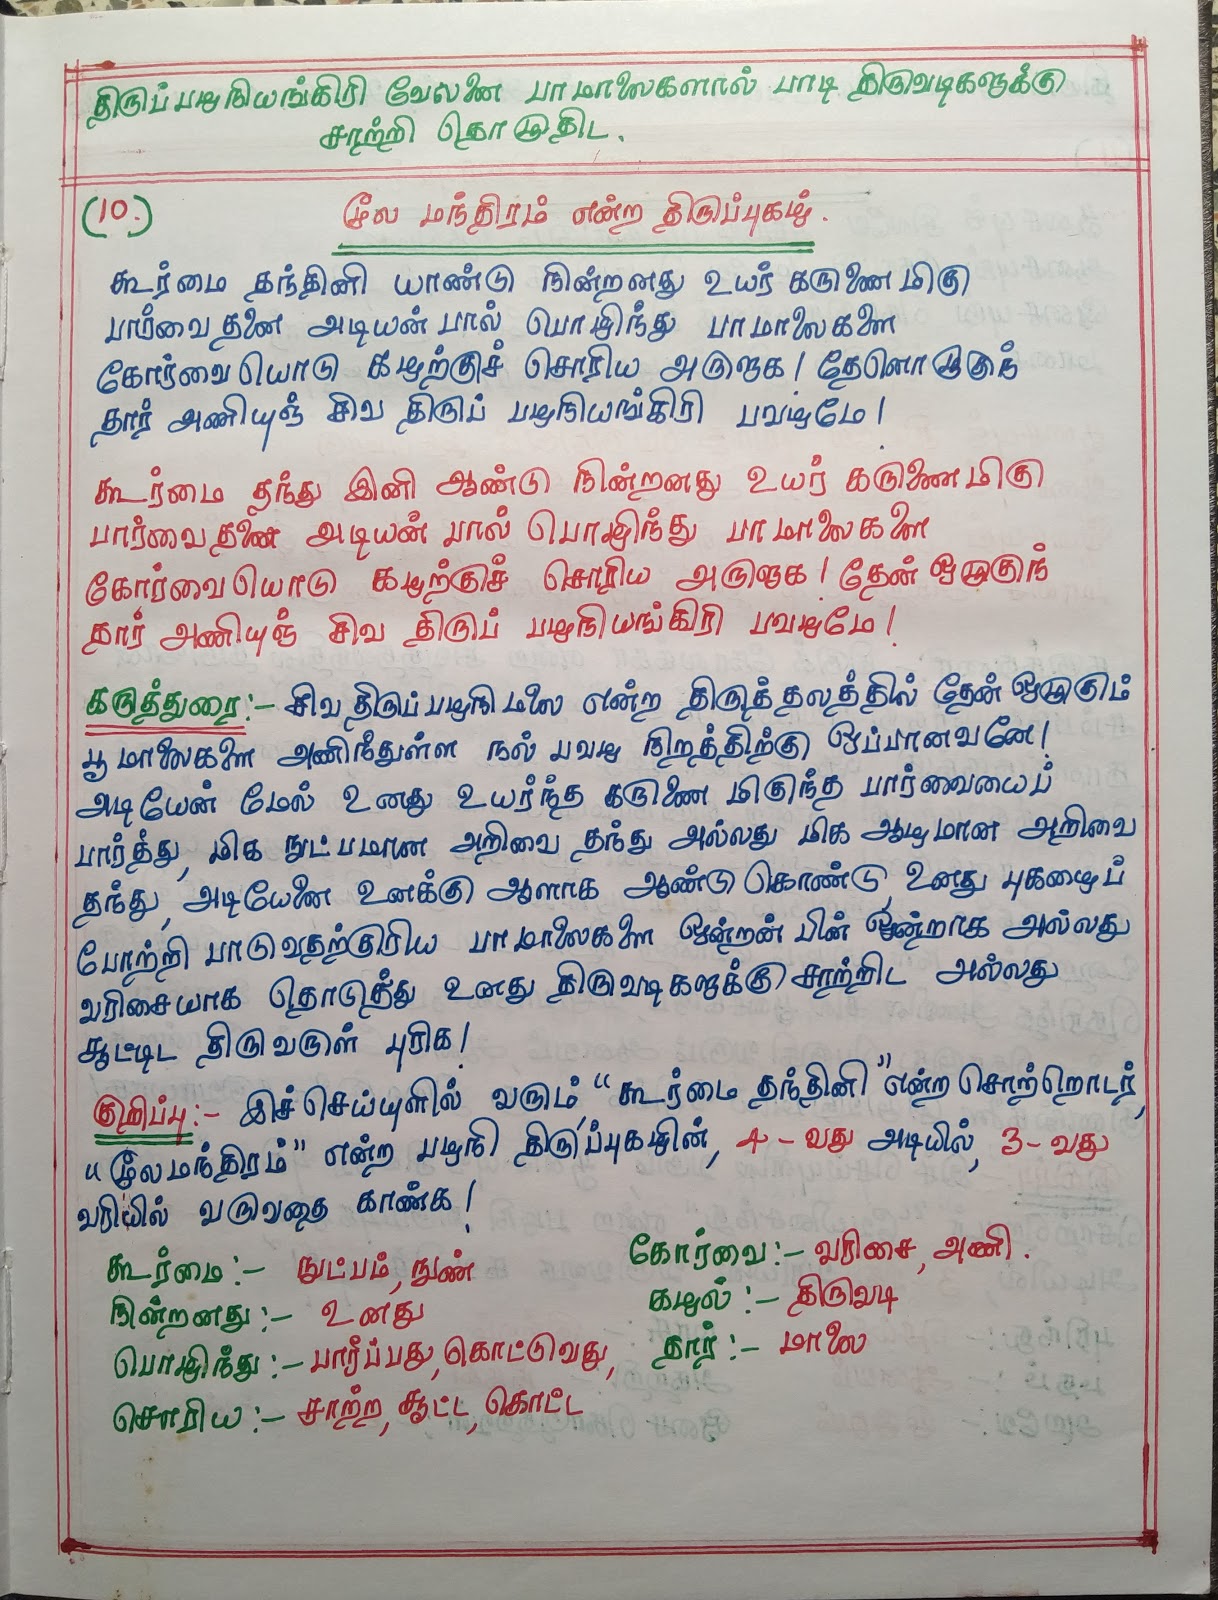 திருப் பழநியங்கிரி வேலனை பாமாலைகளால் பாடி திருவடிகளுக்கு
சாற்றி தொழுதிட.
(10.) மூல மந்திரம் என்ற திருப்புகழ்.
கூர்மை தந்தினி யாண்டு நின்றனது உயர் கருணை மிகு
பார்வை தனை அடியன் பால் பொழிந்து பாமாலைகளை
கோர்வை யொடு கழற்குச் சொரிய அருளுக! தேனொழுகுந்
தார் அணியுஞ் சிவ திருப் பழநியங்கிரி பவழமே!
கூர்மை தந்து இனி ஆண்டு நின்றனது உயர் கருணை மிகு
பார்வை தனை அடியன் பால் பொழிந்து பாமாலைகளை
கோர்வை யொடு கழற்குச் சொரிய அருளுக! தேன் ஒழுகுந்
தார் அணியுஞ் சிவ திருப் பழநியங்கிரி பவழமே!
கருத்துரை:- சிவ திருப் பழநிமலை என்ற திருத் தலத்தில் தேன் ஒழுகும்
பூ மாலைகளை அணிந்துள்ள நல் பவழ நிறத்திற்கு ஒப்பானவனே!
அடியேன் மேல் உனது உயர்ந்த கருணை மிகுந்த பார்வையைப்
பார்த்து, மிக நுட்பமான அறிவை தந்து அல்லது மிக ஆழமான அறிவை
தந்து, அடியேனை உனக்கு ஆளாக ஆண்டு கொண்டு, உனது புகழைப்
போற்றி பாடுவதற்குரிய பாமாலைகளை ஒன்றன் பின் ஒன்றாக அல்லது
வரிசையாக தொடுத்து உனது திருவடிகளுக்கு சாற்றிட அல்லது
சூட்டிட திருவருள் புரிக!
குறிப்பு:- இச் செய்யுளில் வரும், "கூர்மை தந்தினி" என்ற சொற்றொடர்,
"மூலமந்திரம்" என்ற பழநி திருப்புகழின், 4-வது அடியில், 3-வது
வரியில் வருவதை காண்க!
கூர்மை:- நுட்பம், நுண் கோர்வை:- வரிசை, அணி.
நின்றனது:- உனது கழல்:- திருவடி
பொழிந்து:- பார்ப்பது, கொட்டுவது, தார்:- மாலை
சொரிய:- சாற்ற, சூட்ட, கொட்ட